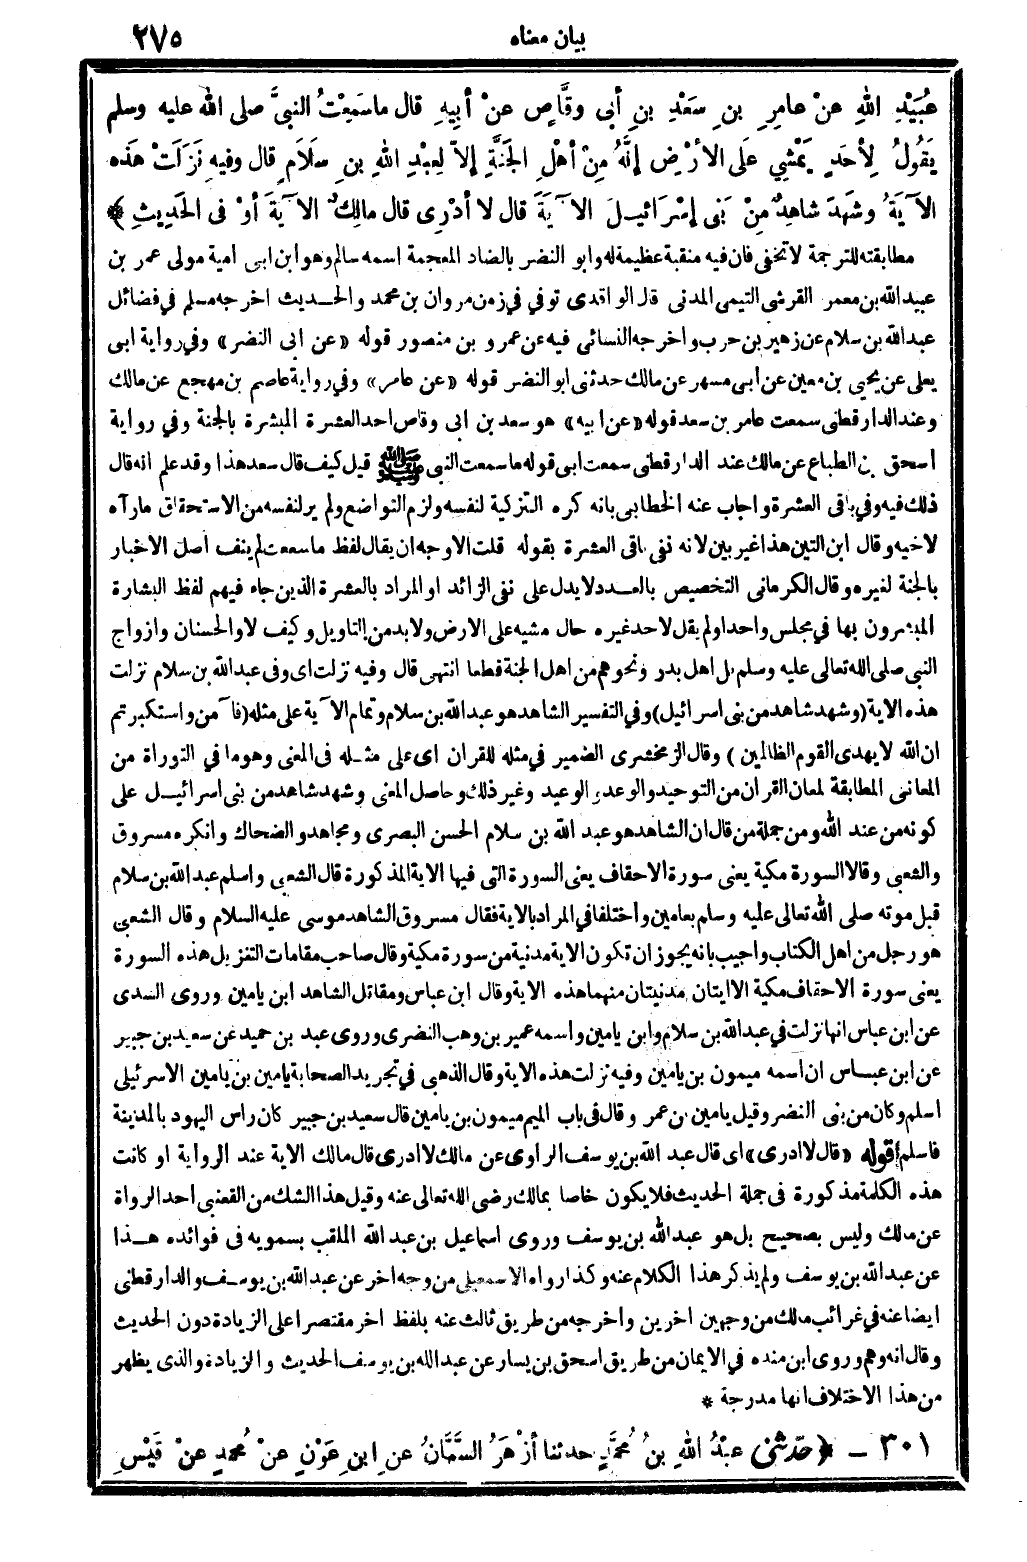 بيان معناه ٢٧٥
عُبَيْدِ اللهِ عنْ عامِرِ بنِ سَعْدِ بنِ أبى وقَّاصٍ عنْ أبِيهِ قال ماسَمِعْتُ النبىَّ صلى الله عليه وسلم
يَقُولُ لِأحَدٍ يَمْشِي عَلى الأرْضِ إنَّهُ مِنْ أهْلِ الجَنَّةِ إلاّ لِعبْدِ اللهِ بنِ سلَامٍ قال وفيه نَزَلَتْ هَذه
الآيَةُ وشَهِدَ شاهِدٌ مِنْ بَنِى إسْرائيلَ الآيَةَ قال لا أدْرِى قال مالِكٌ الآيةَ أوْ فى الحَدِيثِ ﴾
مطابقته للترجمة لاتخفى فان فيه منقبة عظيمة له وابو النضر بالضاد المعجمة اسمه سالم وهو ابن ابى امية مولى عمر بن
عبيدالله بن معمر القرشى التيمى المدنى قال الواقدى توفي في زمن مروان بن محمد والحديث اخرجه مسلم في فضائل
عبدالله بن سلام عن زهير بن حرب واخرجه النسائى فيه عن عمرو بن منصور قوله «عن ابى النضر» وفي رواية ابى
يعلى عن يحيى بن معين عن ابى مسهر عن مالك حدثنى ابو النضر قوله «عن عامر» وفي رواية عاصم بن مهجع عن مالك
وعند الدارقطنى سمعت عامر بن سعد قوله «عن ابيه» هو سعد بن ابى وقاص احد العشرة المبشرة بالجنة وفي رواية
اسحق بن الطباع عن مالك عند الدارقطنى سمعت ابى قوله ما سمعت النبى ﷺ قيل كيف قال سعد هذا وقد علم انه قال
ذلك فيه وفي باقى العشرة واجاب عنه الخطابى بانه كره التزكية لنفسه ولزم التواضع ولم ير لنفسه من الاستحقاق مارآه
لاخيه وقال ابن التين هذا غير بين لانه نفى باقى العشرة بقوله قلت الاوجه ان يقال لفظ ما سمعت لم ينف اصل الاخبار
بالجنة لغيره وقال الكرمانى التخصيص بالعدد لايدل على نفى الزائد او المراد بالعشرة الذين جاء فيهم لفظ البشارة
المبشرون بها في مجلس واحد او لم يقل لاحد غيره حال مشيه على الارض ولابد من التاويل وكيف لا والحسنان وازواج
النبى صلى الله تعالى عليه وسلم بل اهل بدر ونحوهم من اهل الجنة قطعا انتهى قال وفيه نزلت اى وفى عبدالله بن سلام نزلت
هذه الاية (وشهد شاهد من بنى اسرائيل) وفي التفسير الشاهد هو عبدالله بن سلام وتمام الآية على مثله (فآمن واستكبرتم
ان الله لا يهدى القوم الظالمين) وقال الزمخشرى الضمير في مثله للقران اى على مثله فى المعنى وهو ما في التوراة من
المعانى المطابقة لمعان القران من التوحيد والوعد والوعيد وغير ذلك وحاصل المعنى وشهد شاهد من بنى اسرائيل على
كونه من عند الله ومن جملة من قال ان الشاهد هو عبد الله بن سلام الحسن البصرى ومجاهد والضحاك وانكره مسروق
والشعبى وقالا السورة مكية يعنى سورة الاحقاف يعنى السورة التى فيها الاية المذكورة قال الشعبى واسلم عبدالله بن سلام
قبل موته صلى الله تعالى عليه وسلم بعامين واختلفا في المراد بالاية فقال مسروق الشاهد موسى عليه السلام وقال الشعبى
هو رجل من اهل الكتاب واجيب بانه يجوز ان تكون الاية مدنية من سورة مكية وقال صاحب مقامات التنزيل هذه السورة
يعنى سورة الاحقاف مكية الا ايتان مدنيتان منها هذه الاية وقال ابن عباس ومقاتل الشاهد ابن يامين وروى السدى
عن ابن عباس انها نزلت في عبدالله بن سلام وابن يامين واسمه عمير بن وهب النضرى وروى عبد بن حميد عن سعيد بن جبير
عن ابن عباس ان اسمه ميمون بن يامين وفيه نزلت هذه الاية وقال الذهبى في تجريد الصحابة يامين بن يامين الاسرئيلى
اسلم وكان من بنى النضر وقيل يامين بن عمر وقال فى باب الميم ميمون بن يامين قال سعيد بن جبير كان راس اليهود بالمدينة
فاسلم قوله «قال لا ادرى» اى قال عبد الله بن يوسف الراوى عن مالك لا ادرى قال مالك الاية عند الرواية او كانت
هذه الكلمة مذكورة فى جملة الحديث فلا يكون خاصا بمالك رضى الله تعالى عنه وقيل هذا الشك من القعنبى احد الرواة
عن مالك وليس بصحيح بل هو عبدالله بن يوسف وروى اسماعيل بن عبد الله الملقب بسمويه فى فوائده هذا
عن عبدالله بن يوسف ولم يذكر هذا الكلام عنه وكذا رواه الاسمعيلى من وجه اخر عن عبدالله بن يوسف والدارقطنى
ايضا عنه في غرائب مالك من وجهين اخرين واخرجه من طريق ثالث عنه بلفظ اخر مقتصرا على الزيادة دون الحديث
وقال انه وهم وروى ابن منده في الايمان من طريق اسحق بن يسار عن عبدالله بن يوسف الحديث والزيادة والذى يظهر
من هذا الاختلاف انها مدرجة *
٣٠١ ـ ﴿حدّثنى عبْدُ اللهِ بنُ مُحمَّدٍ حدثنا أزْهَرُ السَّمَّانُ عنِ ابنِ عَوْنٍ عنْ مُحمدٍ عنْ قَيْسِ